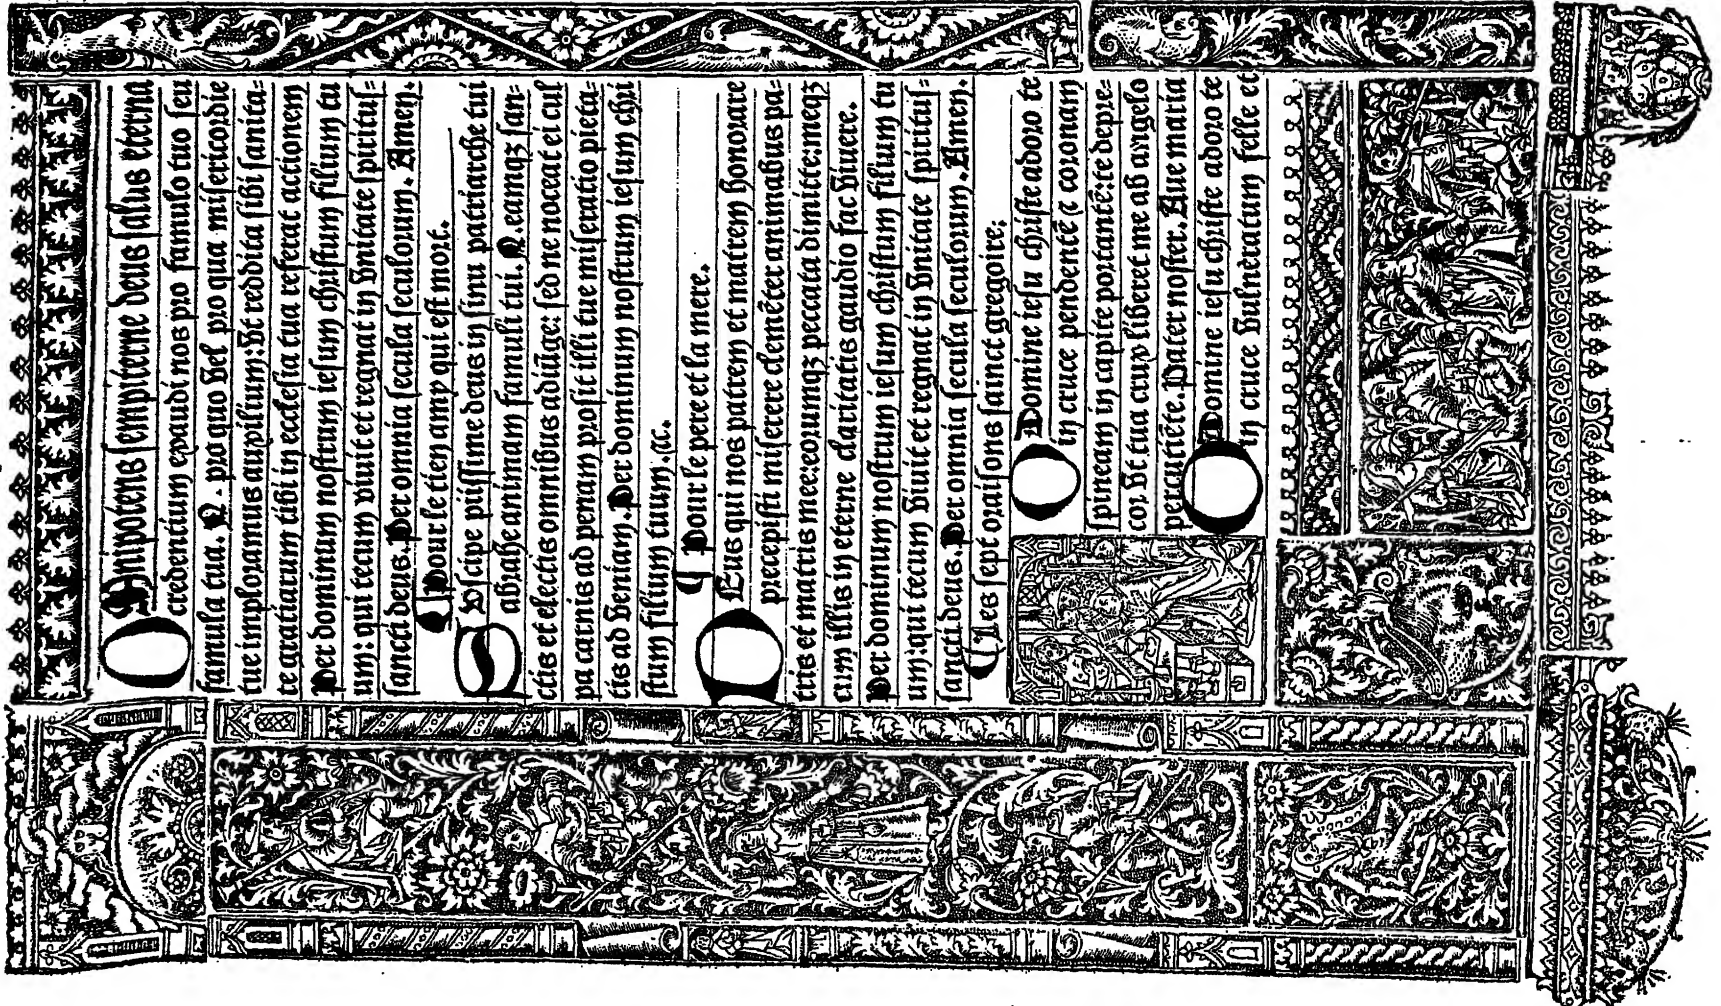 OMnipotens sempiterne deus salus eterna
credentium exaudi nos pro famulo tuo seu
famula tua. N. pro quo vel pro qua misericordie
tue imploramus auxilium: vt reddita sibi sanita=
te gratiarum tibi in ecclesia tua referat actionem
Per dominum nostrum iesum christum filium tu
um: qui tecum viuit et regnat in vnitate spiritus=
sancti deus. Per omnia secula seculorum. Amen.
¶ Pour le tien amy qui est mort.
SUscipe piissime deus in sinu patriarche tui
abrahe animam famuli tui. N. eamqz san=
ctis et electis omnibus adiũge: sed ne noceat ei cul
pa carnis ad penam prosit illi tue miseratio pieta=
tis ad veniam. Per dominum nostrum iesum chri
stum filium tuum. ⁊c.
¶ Pour le pere et la mere.
DEus qui nos patrem et matrem honorare
precepisti miserere clemẽter animabus pa=
tris et matris mee: eorumqz peccata dimitte: meqz
cum illis in eterne claritatis gaudio fac viuere.
Per dominum nostrum iesum christum filium tu
um: qui tecum viuit et regnat in vnitate spiritus=
sancti deus. Per omnia secula seculorum. Amen.
¶ Les sept oraisons sainct gregoire:
O Domine iesu christe adoro te
in cruce pendentẽ ⁊ coronam
spineam in capite portantẽ: te depre=
cor vt tua crux liberet me ab angelo
percutiẽte. Pater noster. Aue maria
O Domine iesu christe adoro te
in cruce vulneratum felle et